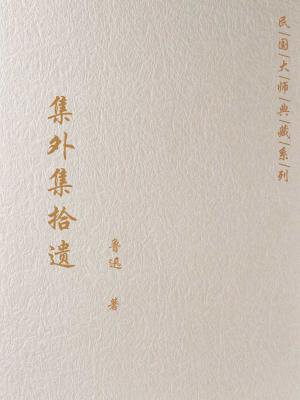 民国大师典藏系列
集外集拾遗
鲁迅 著